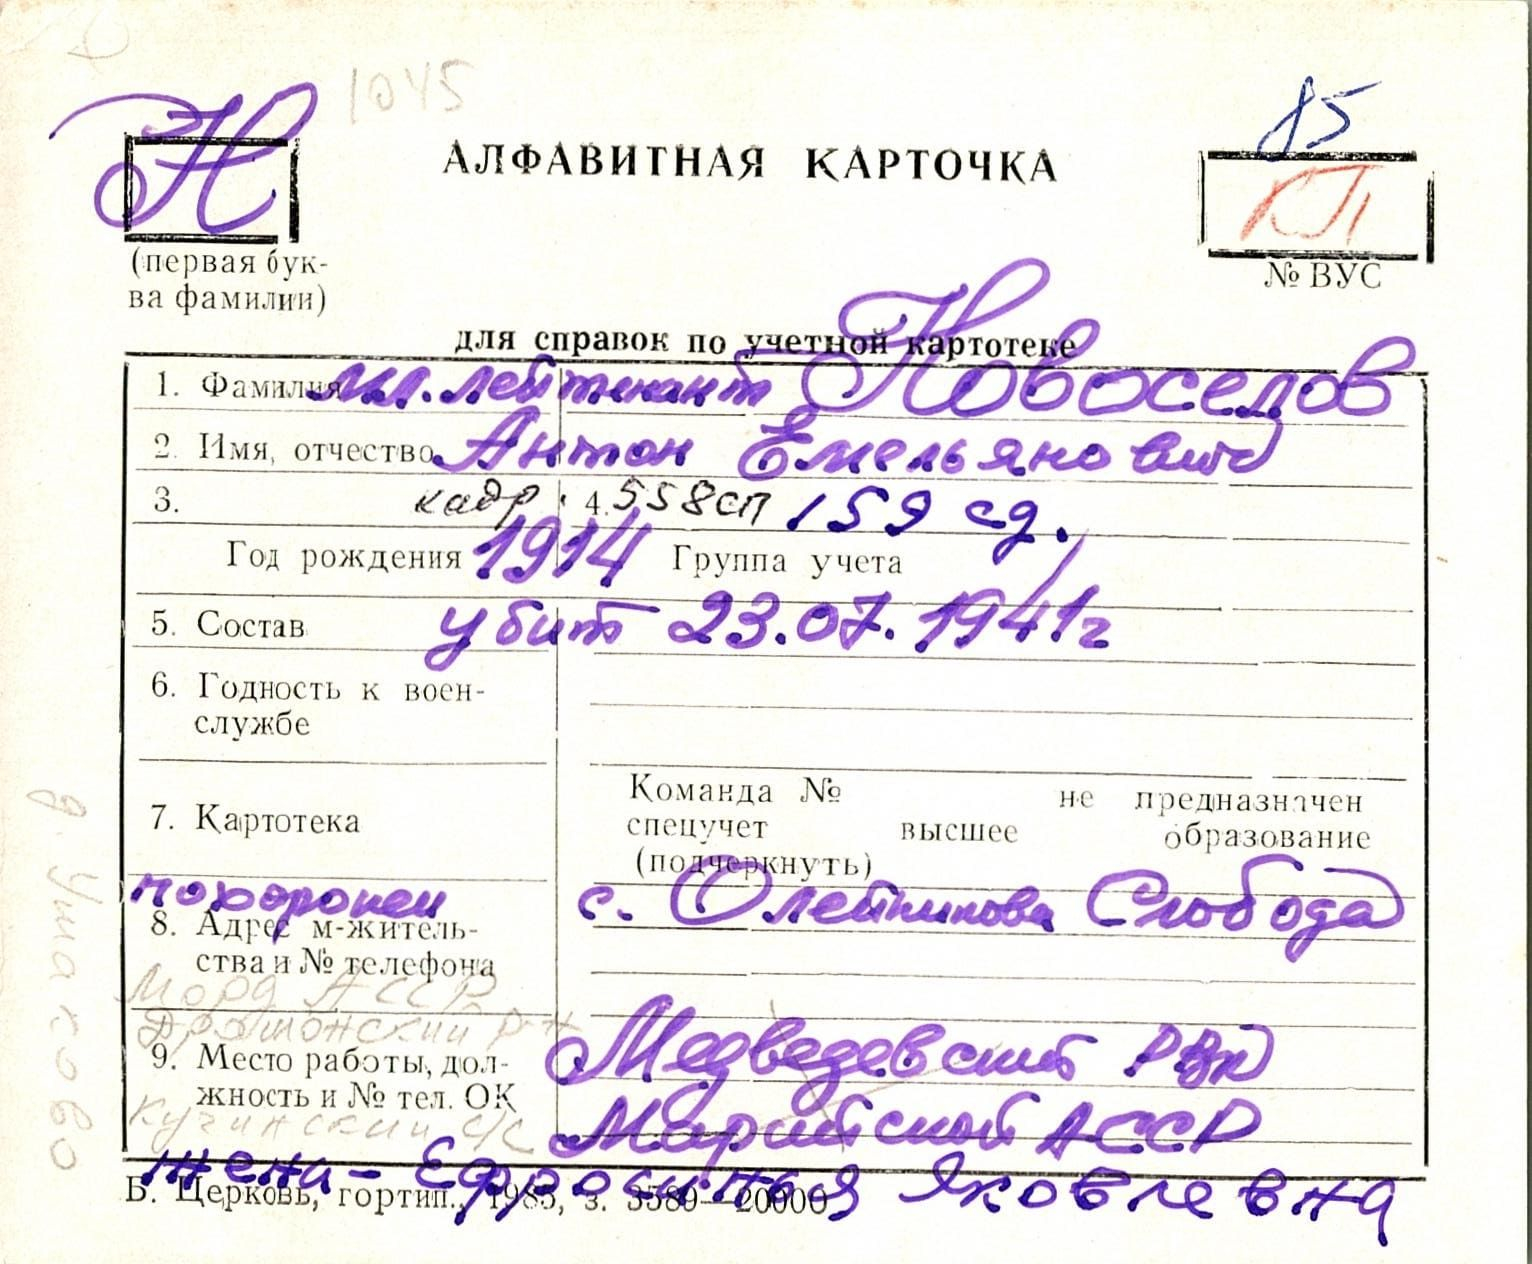 1045
Н
85
АЛФАВИТНАЯ КАРТОЧКА
КП
(первая бук-
ва фамилии)
№ ВУС
для справок по учетной картотеке
1. Фамилия мл. лейтенант Новоселов
2. Имя, отчество Антон Емельянович
3. кадр. 4. 558сп 159 сд.
Год рождения 1914 Группа учета
5. Состав убит 23.07.1941г
6. Годность к воен-
службе
7. Картотека
Команда № не предназначен
спецучет высшее образование
(подчеркнуть)
похоронен с. Олейникова Слобода
8. Адрес м-житель-
ства и № телефона
Морд АССР
р-н
9. Место работы, дол-
жность и № тел. ОК
Медведевский РВК
Марийской АССР
Кучинский с/с
жена - Ефросинья Яковлевна
Б. Церковь, гортип., 1985, з. 3580—20000
д. Ушаково